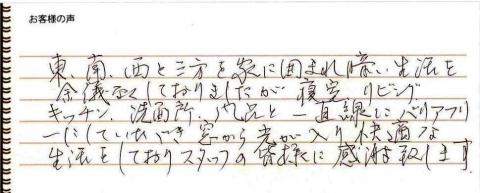 お客様の声
東、南、西と三方を家に囲まれ暗い生活を
余儀なくしておりましたが 寝室 リビング
キッチン、洗面所、風呂と一直線にバリアフリ
ーにしていただき窓から光が入り快適な
生活をしておりスタッフの皆様に感謝致します